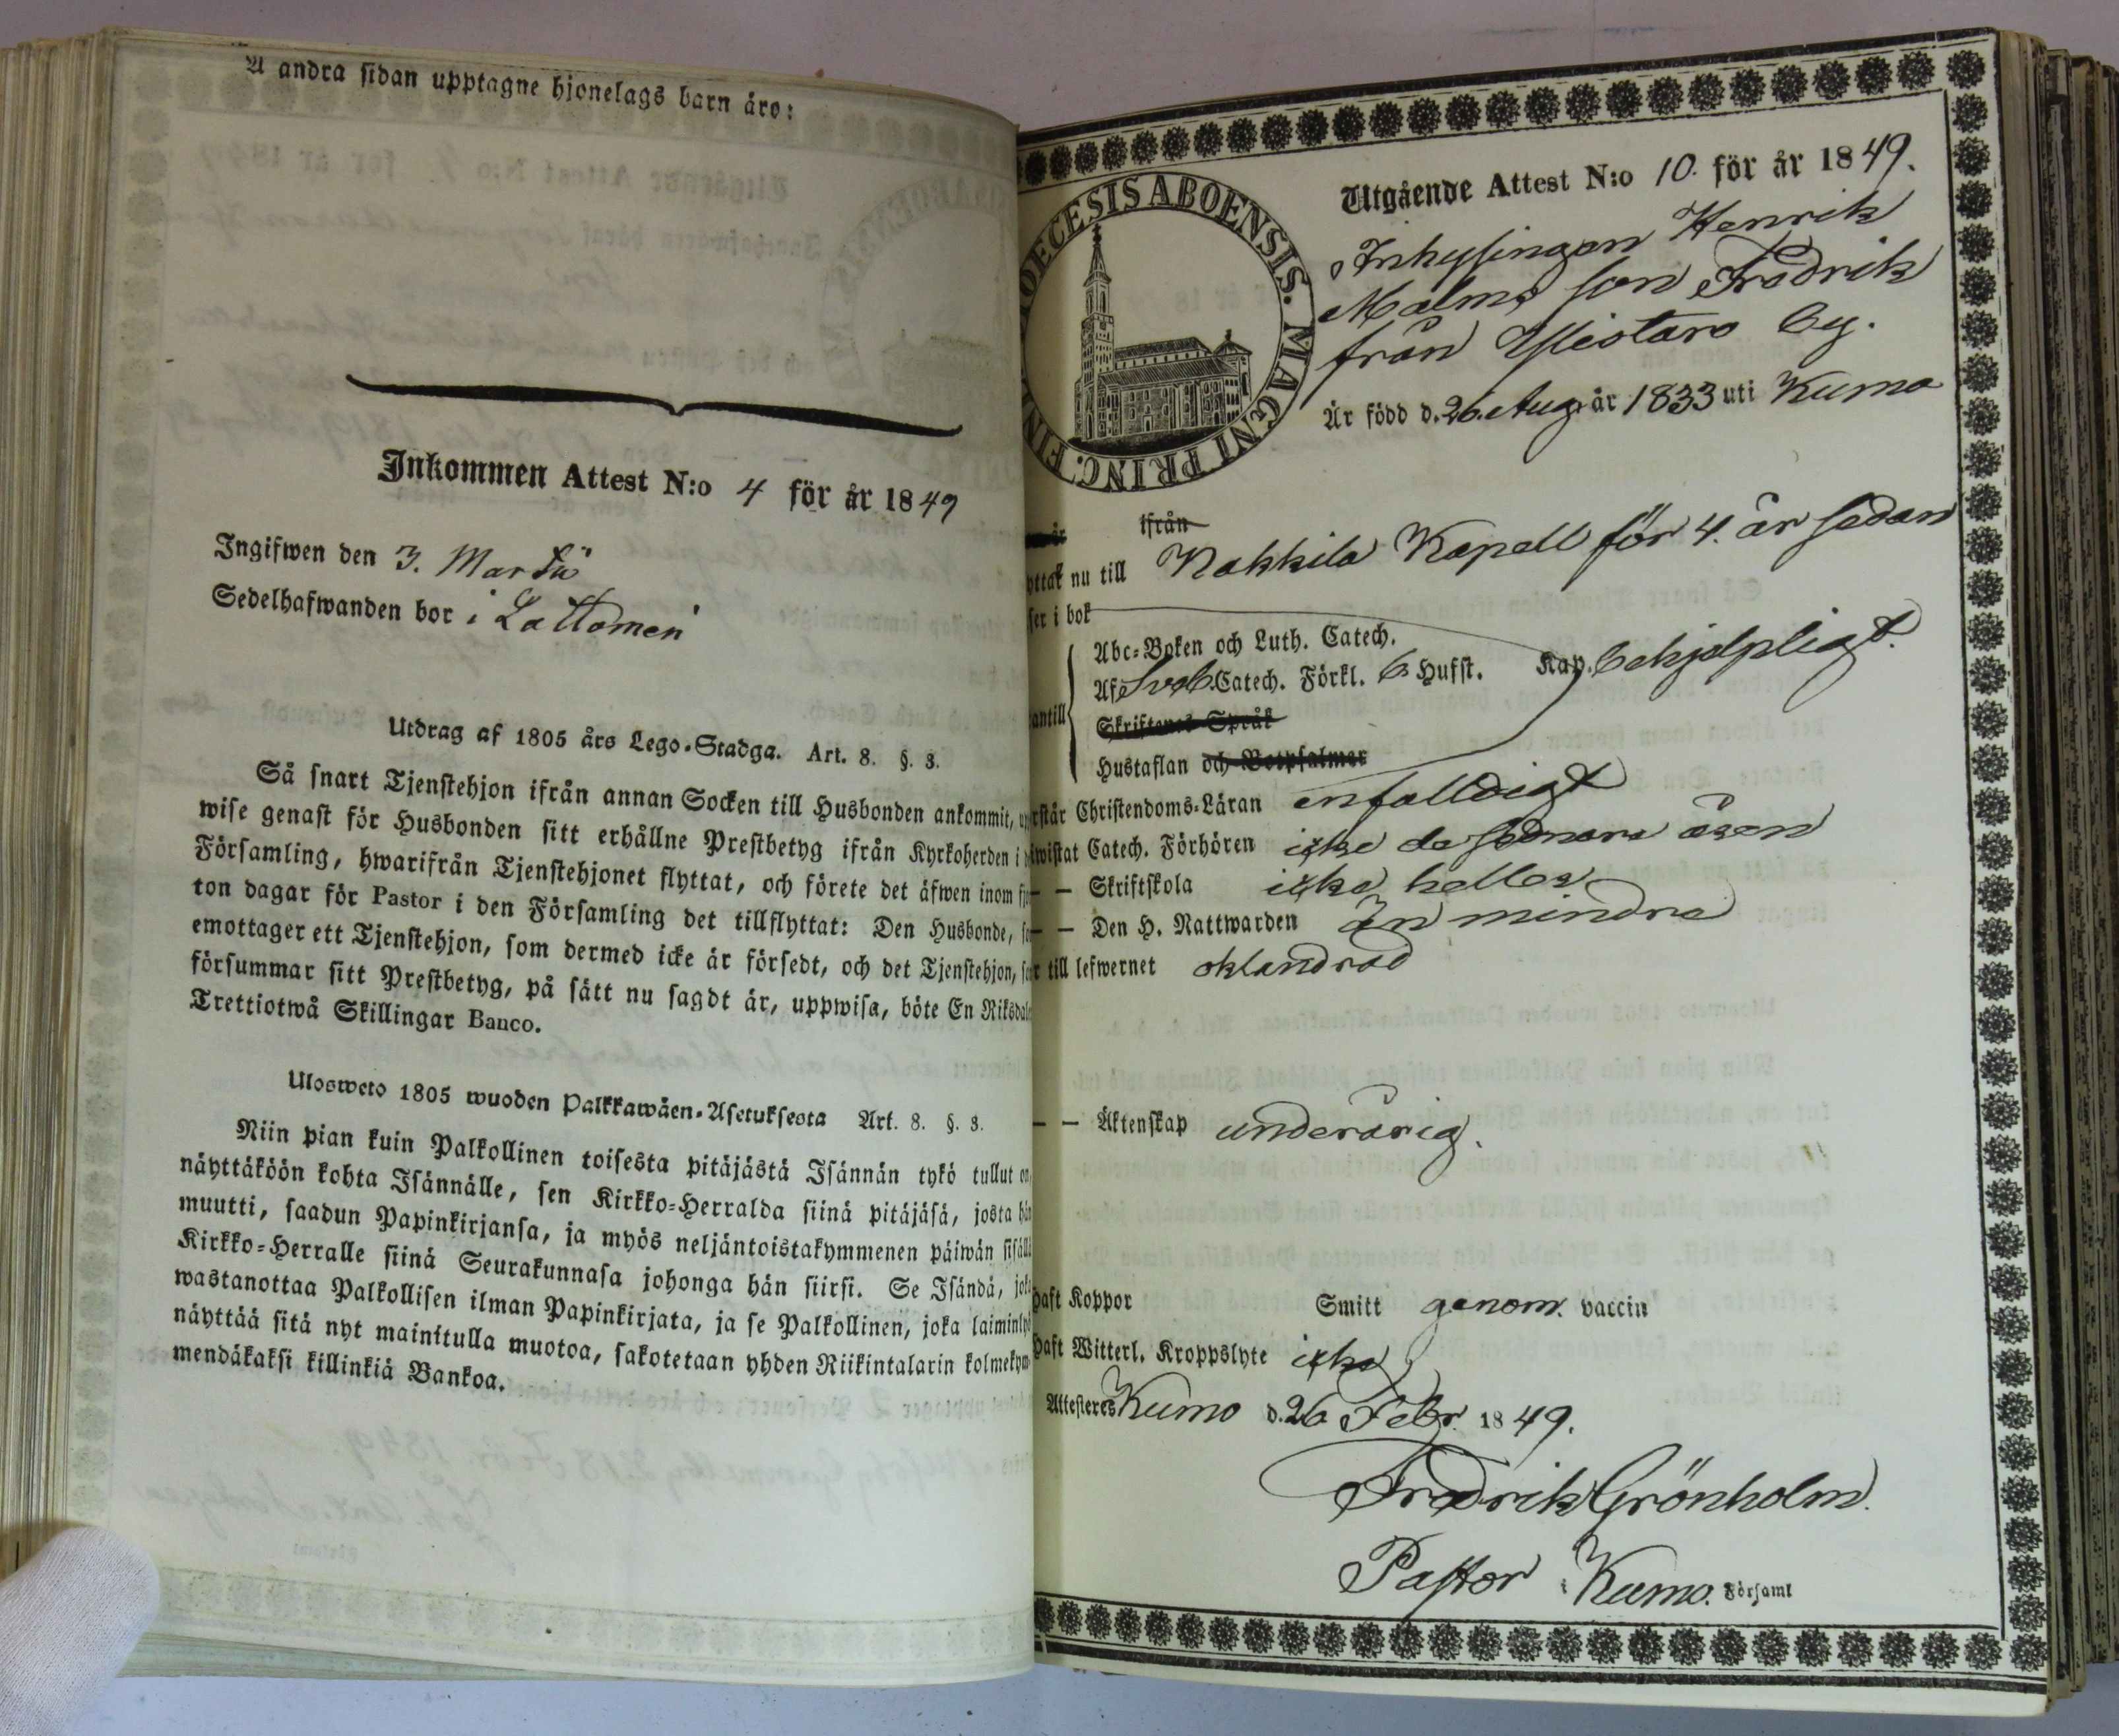 Å andra sidan upptagne hjonelags barn äro:
Inkommen Attest N:o 4 för år 1849
Ingifwen den 3. Martii
Sedelhafwanden bor i Lattomeri
Utdrag af 1805 års Lego-Stadga. Art. 8. §. 3.
Så snart Tjenstehjon ifrån annan Socken till Husbonden ankommit, upp
wise genast för Husbonden sitt erhållne Prestbetyg ifrån Kyrkoherden i d
Församling, hwarifrån Tjenstehjonet flyttat, och förete det äfwen inom fjor
ton dagar för Pastor i den Församling det tillflyttat: Den Husbonde, so
emottager ett Tjenstehjon, som dermed icke är försedt, och det Tjenstehjon, so
försummar sitt Prestbetyg, på sätt nu sagdt är, uppwisa, böte En Riksdaler
Trettiotwå Skillingar Banco.
Ulosweto 1805 wuoden Palkkawäen-Asetuksesta Art. 8. §. 3.
Niin pian kuin Palkollinen toisesta pitäjästä Isännän tykö tullut on,
näyttäköön kohta Isännälle, sen Kirkko-Herralda siinä pitäjäsä, josta hän
muutti, saadun Papinkirjansa, ja myös neljäntoistakymmenen päiwän sisällä
Kirkko-Herralle siinä Seurakunnasa johonga hän siirsi. Se Isändä, joka
wastanottaa Palkollisen ilman Papinkirjata, ja se Palkollinen, joka laiminlyö
näyttää sitä nyt mainitulla muotoa, sakotetaan yhden Riikintalarin kolmekym-
mendäkaksi killinkiä Bankoa.
DIOECESIS ABOENSIS. MAGNI PRINC. FINL
Utgående Attest N:o 10. för år 1849.
Inhysingen Henrik
Malms son Fredrik
från Ylistaro by.
Är född d. 26. Aug. år 1833 uti Kumo
ifrån
yttat nu till Nakkila Kapell för 4. år sedan
ser i bok
Abc-Boken och Luth. Catech.
Af Sveb. Catech. Förkl. 6 Hufst. Kap. behjelpligt.
antill
Skriftenes Språk
Hustaflan och Botpsalmer
rstår Christendoms-Läran enfalldigt
iwistat Catech. Förhören icke de sednare åren
— — Skriftskola icke heller
— — Den H. Nattwarden än mindre
r till lefwernet oklandrad
— — Äktenskap underårig.
haft Koppor Smitt genom. vaccin
haft Witterl. Kroppslyte icke
Attesteres Kumo d. 26 Febr. 1849.
Fredrik Grönholm.
Pastor i Kumo. Församl